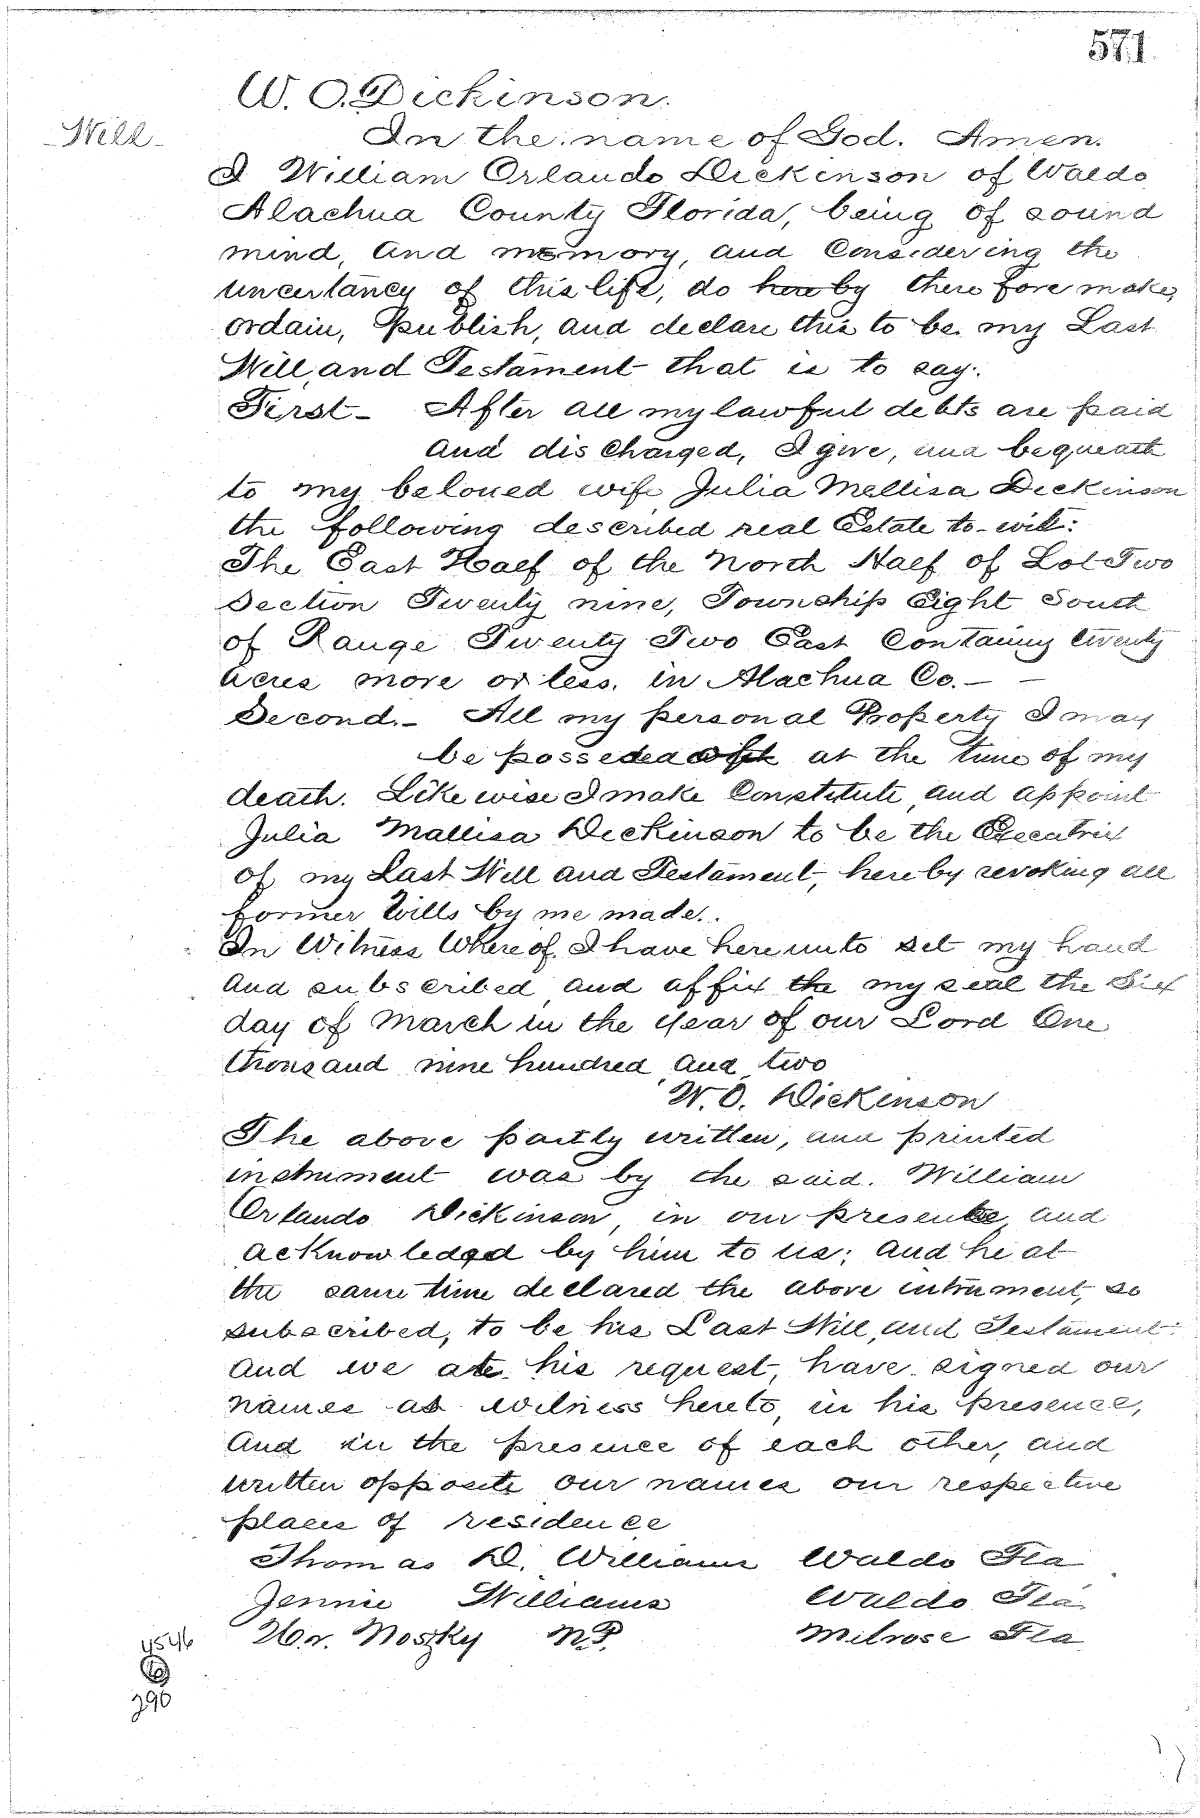 571
W. O. Dickinson.
Will
In the name of God. Amen.
I William Orlando Dickinson of Waldo
Alachua County Florida, being of sound
mind, and memory, and Considering the
uncertancy of this life, do hereby therefore make,
ordain, publish, and declare this to be my Last
Will, and Testament that is to say:
First- After all my lawful debts are paid
and discharged, I give, and bequeath
to my beloved wife Julia Mellisa Dickinson
the following described real Estate to-wit:
The East Half of the North Half of Lot Two
Section Twenty nine, Township Eight South
of Range Twenty Two East Containing twenty
acres more or less. in Alachua Co. - -
Second.- All my personal Property I may
be possesed at the time of my
death. Likewise I make Constitute, and appoint
Julia Mallisa Dickinson to be the Execatrix
of my Last Will and Testament, hereby revoking all
former Wills by me made.
In Witness Whereof, I have hereunto set my hand
and subscribed, and affix the my seal the Six
day of March in the year of our Lord One
thousand nine hundred and two
W. O. Dickinson
The above partly written, and printed
instrument was by the said. William
Orlando Dickinson, in our presence, and
acknowledged by him to us; and he at
the same time declared the above intrument, so
subscribed, to be his Last Will, and Testament:
and we at his request, have signed our
names as witness hereto, in his presence,
and in the presence of each other, and
written opposite our names our respective
places of residence
Thomas D. Williams Waldo Fla
Jennie Williams Waldo Fla.
Hr. Noszky N.P. Melrose Fla.
4546
6
290